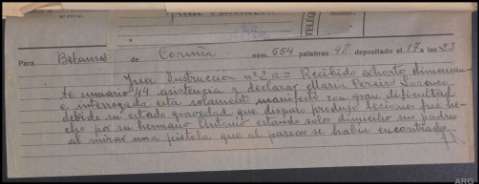 Para Betanzos de Coruña núm. 664 palabras 48 depositado el 17 a las 23
Juez Instruccion nº 2 a = Recibido exhorto dimanan-
te sumario 44 asistencia y declarar Maria Pereiro
e interrogada esta solamente manifestó con gran dificultad
debido su estado gravedad que disparo produjo lesiones fue he-
cho por su hermano Antonio estando solos domicilio sus padres
al mirar una pistola que al parecer se habia encontrado
ARG